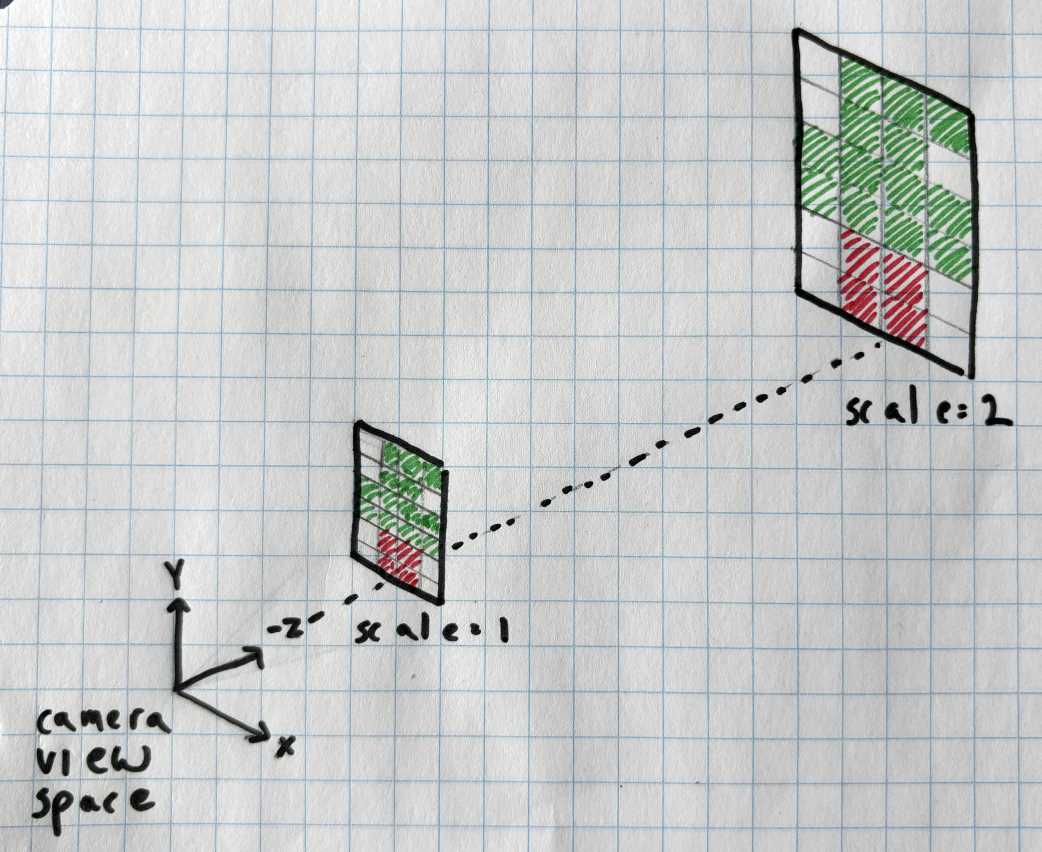 scale=2
Y
-Z
scale=1
X
camera
view
space